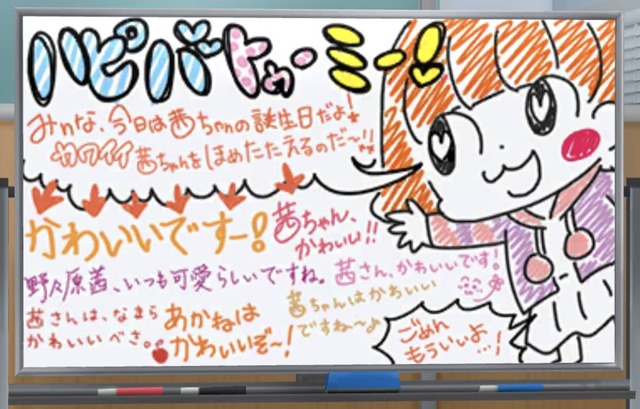 ハピバトゥーミー!
みんな、今日は茜ちゃんの誕生日だよ!
カワイイ茜ちゃんをほめたたえるのだ~!!
かわいいですー!
茜ちゃん、
かわいい!!
野々原茜、いつも可愛らしいですね。
茜さん、かわいいです!
茜さんは、なまら
かわいいべさ。
あかねは
かわいいぞ~!
茜ちゃんはかわいい
ですね~♪
ごめん
もういいよ
…!